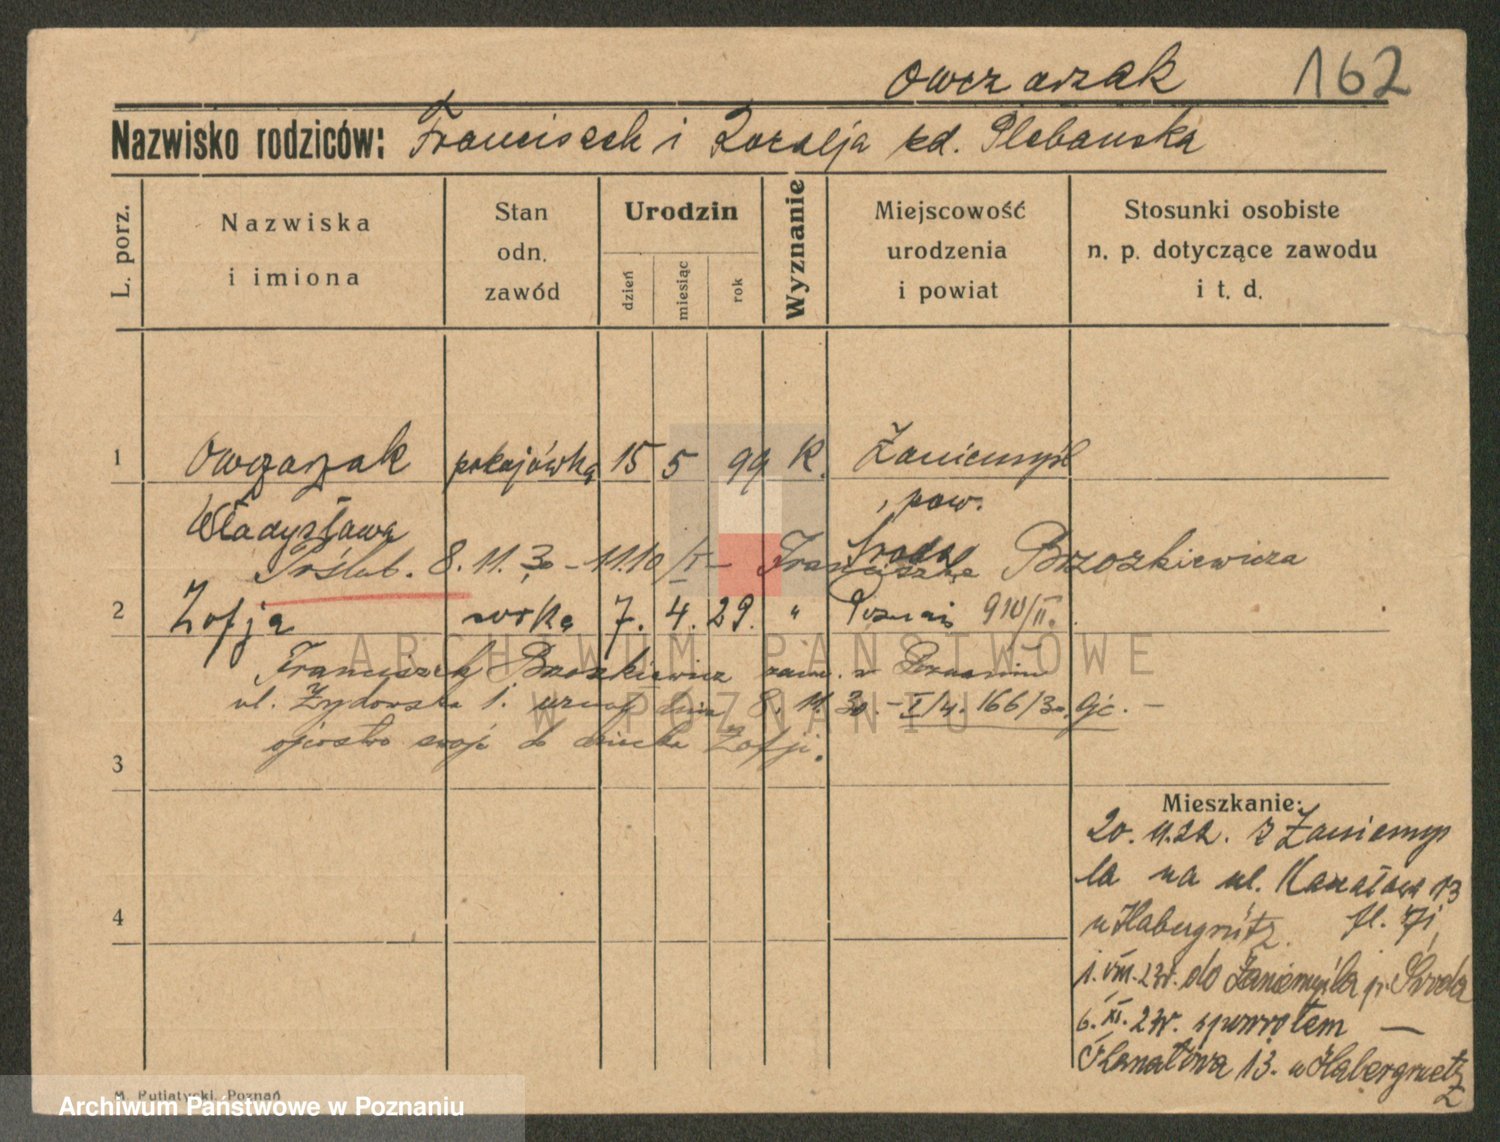 Owczarzak 162
Nazwisko rodziców: Franciszek i Rozalja zd. Plebańska
L. porz.
Nazwiska
i imiona
Stan
odn.
zawód
Urodzin
dzień
miesiąc
rok
Wyznanie
Miejscowość
urodzenia
i powiat
Stosunki osobiste
n. p. dotyczące zawodu
i t. d.
1 Owczarzak pokojówka 15 5 99 K. Zaniemyśl
Władysława , pow.
Środa
Pośłub. 8. 11. 30 – 1110/I – Franciszka Brzozkiewicza
2 Zofja córka 7. 4. 29. " Poznań 910/II.
Franciszek Brzozkiewicz zam. w Poznaniu
ul. Żydowska 1. uznaj dnia 8. 11. 30. – I/4. 166/30 Gć. –
ojcostwo swoje do dziecka Zofji.
3
4
Mieszkanie:
20. 11. 22. z Zaniemyś
la na ul. Kanałowa 13
u Habergrütz.
1. VIII. 23r. do Zaniemyśla p. Środa
6. XI. 23r. spowrotem —
Kanałowa 13. u Habergruetz
M. Putiatycki, Poznań
ARCHIWUM PAŃSTWOWE
W POZNANIU
Archiwum Państwowe w Poznaniu